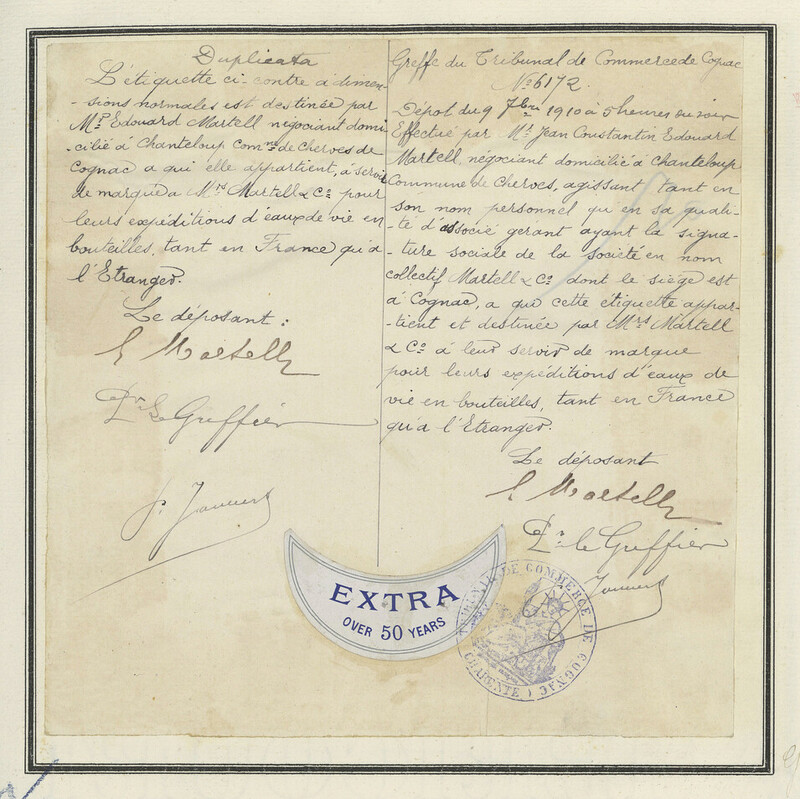 Duplicata
L'étiquette ci-contre a dimen-
sions normales est destinée par
Mr Edouard Martell négociant domi
-cilié à Chanteloup Comne de Cherves de
Cognac a qui elle appartient, à servir
de marque a Mrs Martell & Co pour
leurs expéditions d'eaux de vie en
bouteilles, tant en France qu'a
l'Etranger.
Le déposant :
E Martell
Pr Le Greffier
Greffe du Tribunal de Commerce de Cognac
No 6172.
Dépot du 9 7bre 1910 à 5 heures du soir
Effectué par Mr Jean Constantin Edouard
Martell, négociant domicilié à Chanteloup
Commune de Cherves, agissant tant en
son nom personnel qu'en sa quali-
-té d'associé gerant ayant la signa-
ture sociale de la société en nom
collectif Martell & Co dont le siége est
à Cognac, a que cette étiquette appar-
-tient et destinée par Mrs Martell
& Co à leur servir de marque
pour leurs expéditions d'eaux de
vie en bouteilles, tant en France
qu'a l'Etranger.
Le déposant
E Martell
Pr le Greffier
EXTRA
OVER 50 YEARS
TRIBUNAL DE COMMERCE DE COGNAC
(CHARENTE)